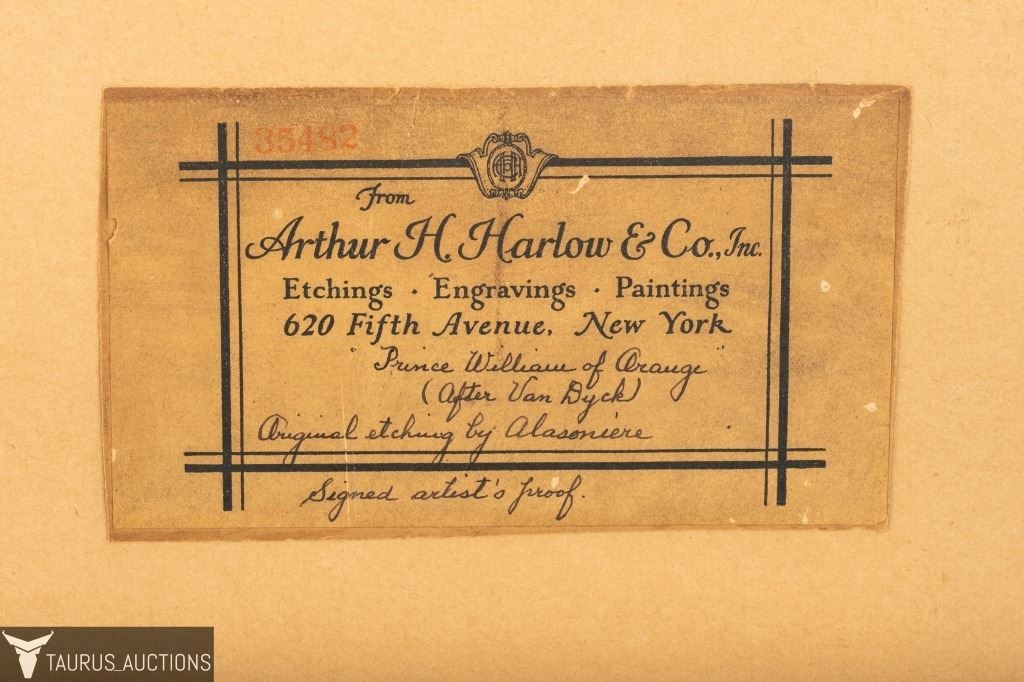 35482
From
Arthur H. Harlow & Co., Inc.
Etchings · Engravings · Paintings
620 Fifth Avenue, New York
"Prince William of Orange"
(After Van Dyck)
Original etching by Alasoniere
Signed artist's proof.
TAURUS_AUCTIONS